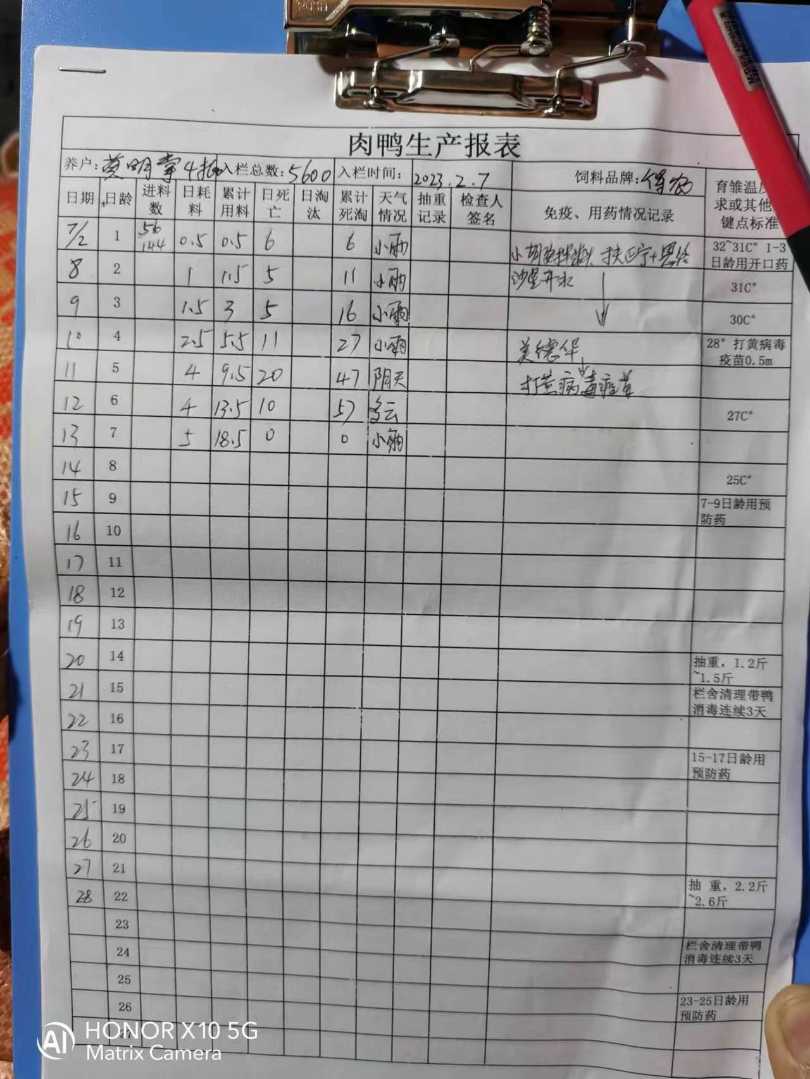 肉鸭生产报表
养户: 莫明 4批 入栏总数: 5600 入栏时间: 2023.2.7 饲料品牌: 育雏温度
求或其他
键点标准
日期 日龄 进料数 日耗料 累计用料 日死亡 日淘汰 累计死淘 天气情况 抽重记录 检查人签名 免疫、用药情况记录
7/2 1 56 144 0.5 0.5 6 6 小雨 32~31C° 1-3日龄用开口药
8 2 1 1.5 5 11 小雨 沙星开水 31C°
9 3 1.5 3 5 16 小雨 30C°
10 4 2.5 5.5 11 27 小雨 28° 打黄病毒疫苗0.5m
11 5 4 9.5 20 47 阴天 打黄病毒疫苗
12 6 4 13.5 10 57 多云 27C°
13 7 5 18.5 0 0 小雨
14 8 25C°
15 9 7-9日龄用预防药
16 10
17 11
18 12
19 13
20 14 抽重，1.2斤~1.5斤
21 15 栏舍清理带鸭消毒连续3天
22 16
23 17 15-17日龄用预防药
24 18
25 19
26 20
27 21
28 22 抽 重，2.2斤~2.6斤
23
24 栏舍清理带鸭消毒连续3天
25
26 23-25日龄用预防药
HONOR X10 5G
Matrix Camera